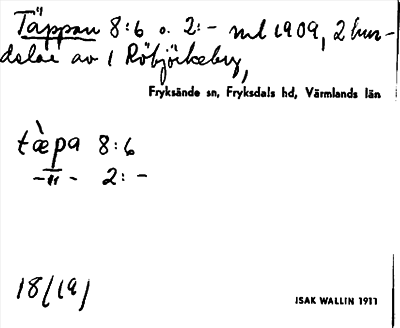 Täppan 8:6 o. 2:- ml 1909, 2 hus-
delar av 1 Röbjörkeby,
Fryksände sn, Fryksdals hd, Värmlands län
tæ̀pa 8:6
-"- 2:-
18/(9)
ISAK WALLIN 1911